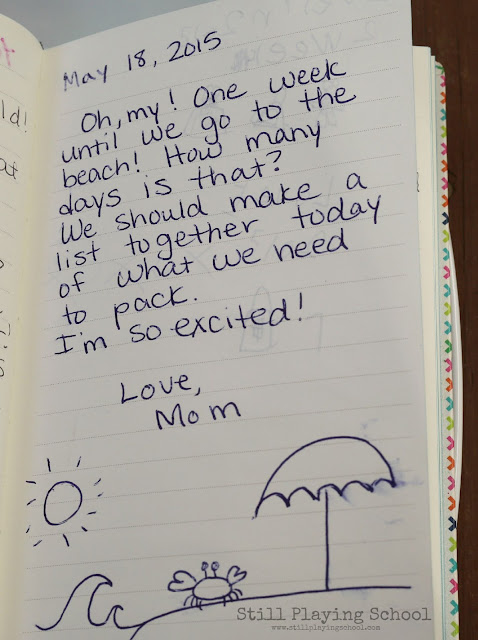 May 18, 2015
Oh, my! One week
until we go to the
beach! How many
days is that?
We should make a
list together today
of what we need
to pack.
I'm so excited!
Love,
Mom
Still Playing School
www.stillplayingschool.com